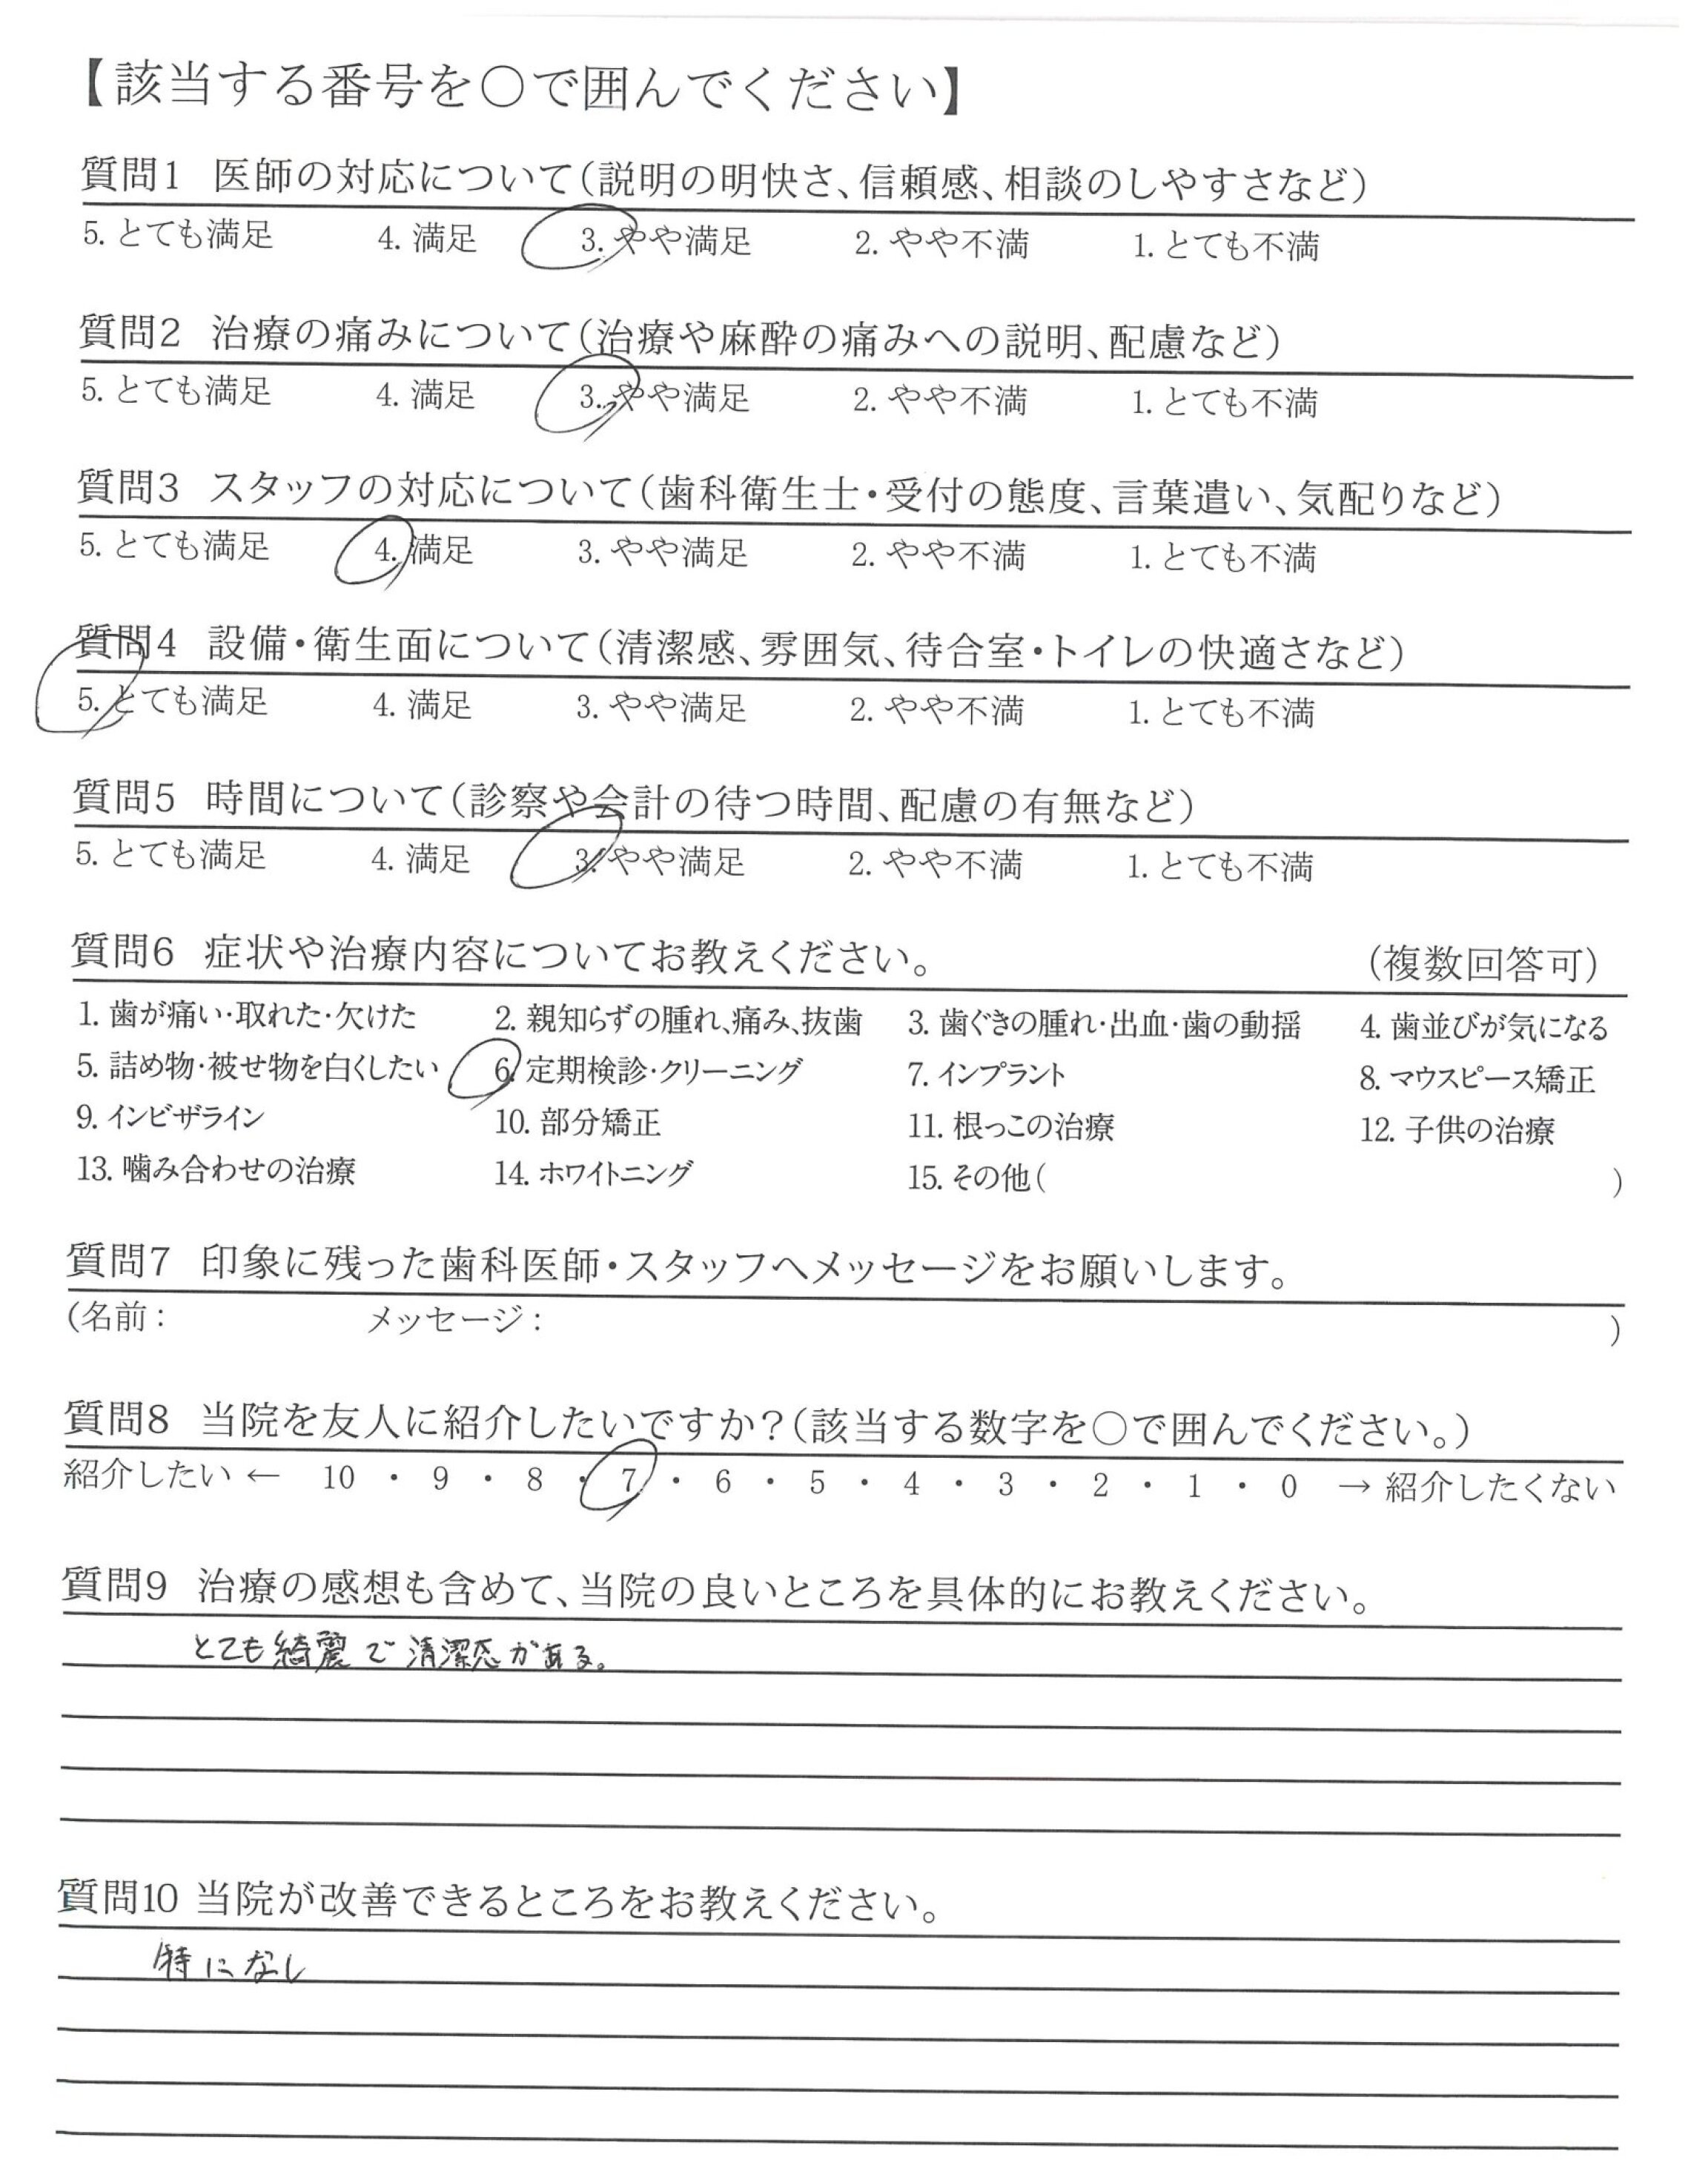 【該当する番号を○で囲んでください】
質問1 医師の対応について(説明の明快さ、信頼感、相談のしやすさなど)
5. とても満足 4. 満足 3. やや満足 2. やや不満 1. とても不満
質問2 治療の痛みについて(治療や麻酔の痛みへの説明、配慮など)
5. とても満足 4. 満足 3. やや満足 2. やや不満 1. とても不満
質問3 スタッフの対応について(歯科衛生士・受付の態度、言葉遣い、気配りなど)
5. とても満足 4. 満足 3. やや満足 2. やや不満 1. とても不満
質問4 設備・衛生面について(清潔感、雰囲気、待合室・トイレの快適さなど)
5. とても満足 4. 満足 3. やや満足 2. やや不満 1. とても不満
質問5 時間について(診察や会計の待つ時間、配慮の有無など)
5. とても満足 4. 満足 3. やや満足 2. やや不満 1. とても不満
質問6 症状や治療内容についてお教えください。 (複数回答可)
1. 歯が痛い・取れた・欠けた 2. 親知らずの腫れ、痛み、抜歯 3. 歯ぐきの腫れ・出血・歯の動揺 4. 歯並びが気になる
5. 詰め物・被せ物を白くしたい 6. 定期検診・クリーニング 7. インプラント 8. マウスピース矯正
9. インビザライン 10. 部分矯正 11. 根っこの治療 12. 子供の治療
13. 噛み合わせの治療 14. ホワイトニング 15. その他( )
質問7 印象に残った歯科医師・スタッフへメッセージをお願いします。
(名前: メッセージ: )
質問8 当院を友人に紹介したいですか?(該当する数字を○で囲んでください。)
紹介したい ← 10 ・ 9 ・ 8 ・ 7 ・ 6 ・ 5 ・ 4 ・ 3 ・ 2 ・ 1 ・ 0 → 紹介したくない
質問9 治療の感想も含めて、当院の良いところを具体的にお教えください。
とても綺麗で清潔感がある。
質問10 当院が改善できるところをお教えください。
特になし